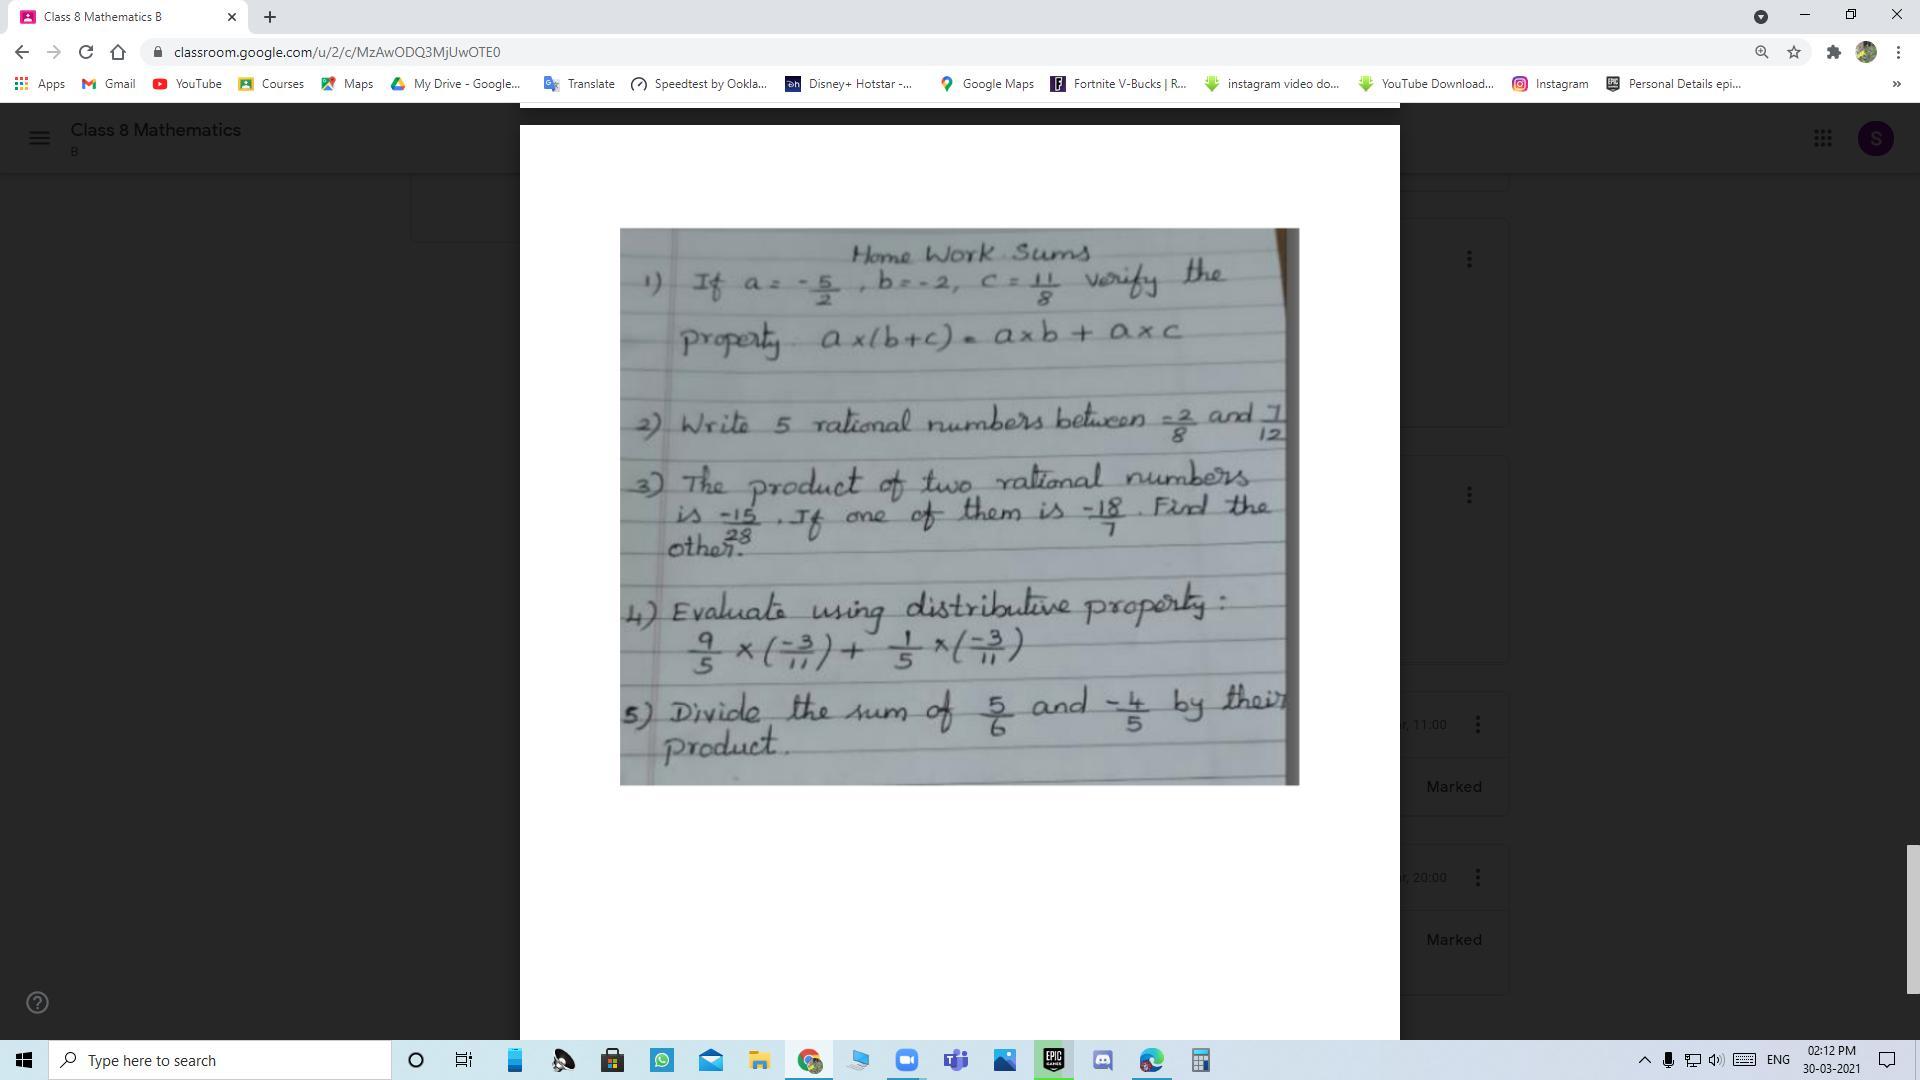 Class 8 Mathematics B
classroom.google.com/u/2/c/MzAwODQ3MjUwOTE0
Apps Gmail YouTube Courses Maps My Drive - Google... Translate Speedtest by Ookla... Disney+ Hotstar -... Google Maps Fortnite V-Bucks | R... instagram video do... YouTube Download... Instagram Personal Details epi... »
Class 8 Mathematics
B
S
Home Work Sums
1) If a = -5/2, b = -2, c = 11/8 verify the
property a x (b+c) = axb + axc
2) Write 5 rational numbers between -2/8 and 7/12
3) The product of two rational numbers
is -15/28. If one of them is -18/7. Find the
other.
4) Evaluate using distributive property :
9/5 × (-3/11) + 1/5 × (-3/11)
5) Divide the sum of 5/6 and -4/5 by their
product.
r, 11:00
Marked
r, 20:00
Marked
Type here to search
ENG
02:12 PM
30-03-2021